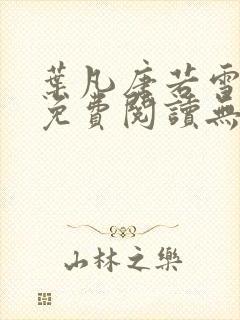 葉凡唐若雪
免費閱讀無
山林之樂